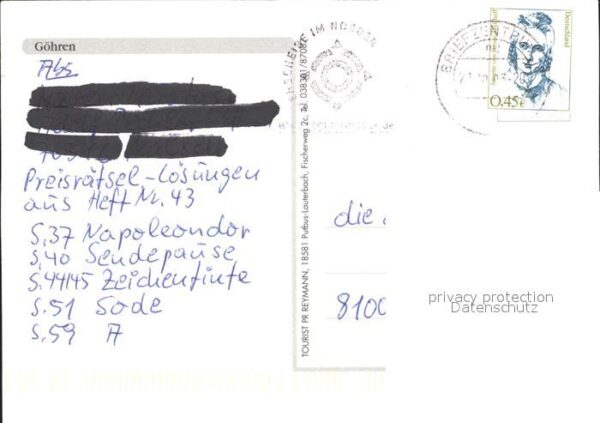 Göhren
Abs
Preisrätsel-Lösungen
aus Heft Nr. 43
S.37 Napoleondor
S.40 Sendepause
S.44/45 Zeichentinte
S.51 Sode
S.59 A
TOURIST PR REYMANN, 18581 Putbus-Lauterbach, Fischerweg 2c, Tel. 038301/87082
IM NORDEN
BRIEFZENTRUM
Deutschland
0,45€
die
8100
privacy protection
Datenschutz